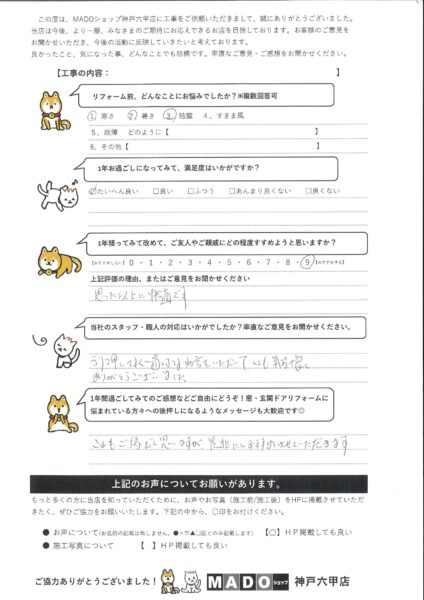 この度は、MADOショップ神戸六甲店に工事をご依頼いただきまして、誠にありがとうございました。
当店は今後、より一層、みなさまのご期待にお応えできるお店を目指しております。お客様のご意見を
お聞かせいただき、今後の活動に反映していきたいと考えております。
良かったこと、気になった事、どんなことでも結構です。率直なご意見・ご感想をお聞かせください。
【工事の内容: 】
リフォーム前、どんなことにお悩みでしたか?※複数回答可
1. 寒さ 2. 暑さ 3. 結露 4. すきま風
5. 故障 どのように【 】
6. その他【 】
1年お過ごしになってみて、満足度はいかがですか?
☑たいへん良い □良い □ふつう □あんまり良くない □良くない
1年経ってみて改めて、ご友人やご親戚にどの程度すすめようと思いますか?
0・1・2・3・4・5・6・7・8・9
上記評価の理由、またはご意見をお聞かせください
思った以上に快適です
当社のスタッフ・職人の対応はいかがでしたか?率直なご意見をお聞かせください。
ありがとうございました
1年間過ごしてみてのご感想などご自由にどうぞ!窓・玄関ドアリフォームに
悩まれている方々への後押しになるようなメッセージも大歓迎です◎
上記のお声についてお願いがあります。
もっと多くの方に当店を知っていただくために、お声やお写真(施工前/施工後)をHPに掲載させていただ
きたく、ぜひご協力をお願いいたします。下記の中から、〇印をお付けください。
● お声について(お名前の記載は致しません、●×市▲□区とのみ記載します) 【○】HP掲載しても良い
● 施工写真について 【 】HP掲載しても良い
ご協力ありがとうございました! MADOショップ 神戸六甲店